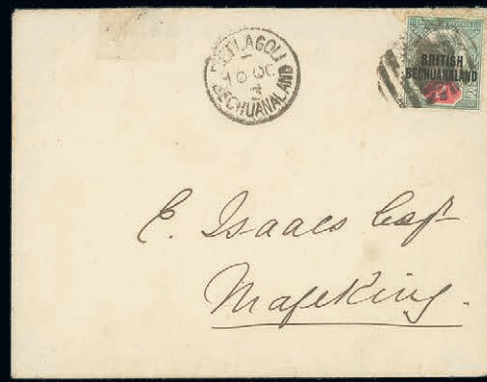 SETLAGOLI
10 OC
3
BECHUANALAND
BRITISH
BECHUANALAND
E. Isaacs Esqr
Mafeking.